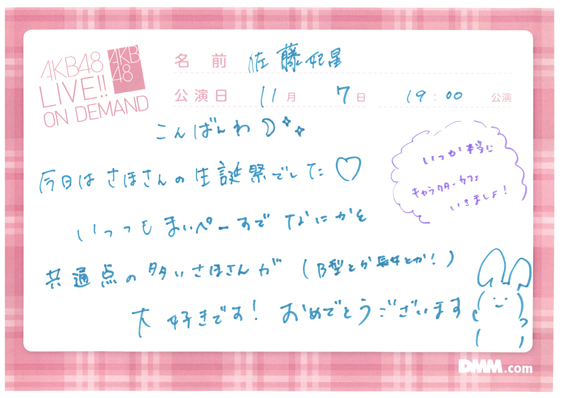 AKB48
LIVE!!
ON DEMAND
AKB
48
名前 佐藤妃星
公演日 11月 7日 19:00 公演
こんばんわ
今日はさほさんの生誕祭でした♡
いっつもまいぺーすでなにかと
共通点の多いさほさんが (B型とか長女とか!)
大好きです! おめでとうございます
いつか本当に
キャラクターカフェ
いきましょ!
DMM.com